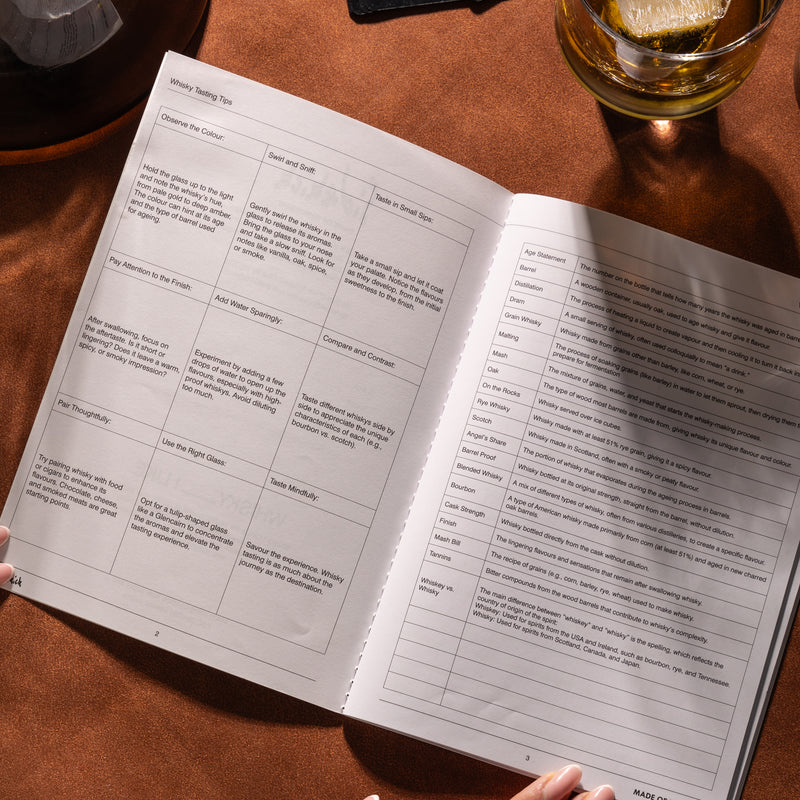 Whisky Tasting Tips
Observe the Colour:
Hold the glass up to the light
and note the whisky's hue,
from pale gold to deep amber.
The colour can hint at its age
and the type of barrel used
for ageing.
Swirl and Sniff:
Gently swirl the whisky in the
glass to release its aromas.
Bring the glass to your nose
and take a slow sniff. Look for
notes like vanilla, oak, spice,
or smoke.
Taste in Small Sips:
Take a small sip and let it coat
your palate. Notice the flavours
as they develop, from the initial
sweetness to the finish.
Pay Attention to the Finish:
After swallowing, focus on
the aftertaste. Is it short or
lingering? Does it leave a warm,
spicy, or smoky impression?
Add Water Sparingly:
Experiment by adding a few
drops of water to open up the
flavours, especially with high-
proof whiskys. Avoid diluting
too much.
Compare and Contrast:
Taste different whiskys side by
side to appreciate the unique
characteristics of each (e.g.,
bourbon vs. scotch).
Pair Thoughtfully:
Try pairing whisky with food
or cigars to enhance its
flavours. Chocolate, cheese,
and smoked meats are great
starting points.
Use the Right Glass:
Opt for a tulip-shaped glass
like a Glencairn to concentrate
the aromas and elevate the
tasting experience.
Taste Mindfully:
Savour the experience. Whisky
tasting is as much about the
journey as the destination.
2
Age Statement
The number on the bottle that tells how many years the whisky was aged in barrels
Barrel
A wooden container, usually oak, used to age whisky and give it flavour.
Distillation
The process of heating a liquid to create vapour and then cooling it to turn it back in
Dram
A small serving of whisky, often used colloquially to mean "a drink."
Grain Whisky
Whisky made from grains other than barley, like corn, wheat, or rye.
Malting
The process of soaking grains (like barley) in water to let them sprout, then drying them
prepare for fermentation
Mash
The mixture of grains, water, and yeast that starts the whisky-making process.
Oak
The type of wood most barrels are made from, giving whisky its unique flavour and colour.
On the Rocks
Whisky served over ice cubes.
Rye Whisky
Whisky made with at least 51% rye grain, giving it a spicy flavour.
Scotch
Whisky made in Scotland, often with a smoky or peaty flavour.
Angel's Share
The portion of whisky that evaporates during the ageing process in barrels.
Barrel Proof
Whisky bottled at its original strength, straight from the barrel, without dilution.
Blended Whisky
A mix of different types of whisky, often from various distilleries, to create a specific flavour.
Bourbon
A type of American whisky made primarily from corn (at least 51%) and aged in new charred
oak barrels.
Cask Strength
Whisky bottled directly from the cask without dilution.
Finish
The lingering flavours and sensations that remain after swallowing whisky.
Mash Bill
The recipe of grains (e.g., corn, barley, rye, wheat) used to make whisky.
Tannins
Bitter compounds from the wood barrels that contribute to whisky's complexity.
Whiskey vs.
Whisky
The main difference between "whiskey" and "whisky" is the spelling, which reflects the
country of origin of the spirit:
Whiskey: Used for spirits from the USA and Ireland, such as bourbon, rye, and Tennessee.
Whisky: Used for spirits from Scotland, Canada, and Japan.
3
MADE